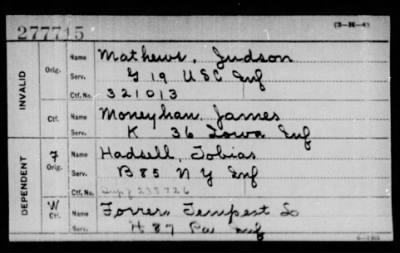 277715 (3-H-4)
INVALID
Orig. Name Mathews, Judson
Serv. G 19 USC Inf
Ctf. No. 321013
Ctf. Name Moneyhan, James
Serv. K 36 Iowa Inf
DEPENDENT
F Orig. Name Hadsell, Tobias
Serv. B 85 N Y Inf
Ctf. No.
W Ctf. Name Tempest
Serv. H 87 Pa Inf